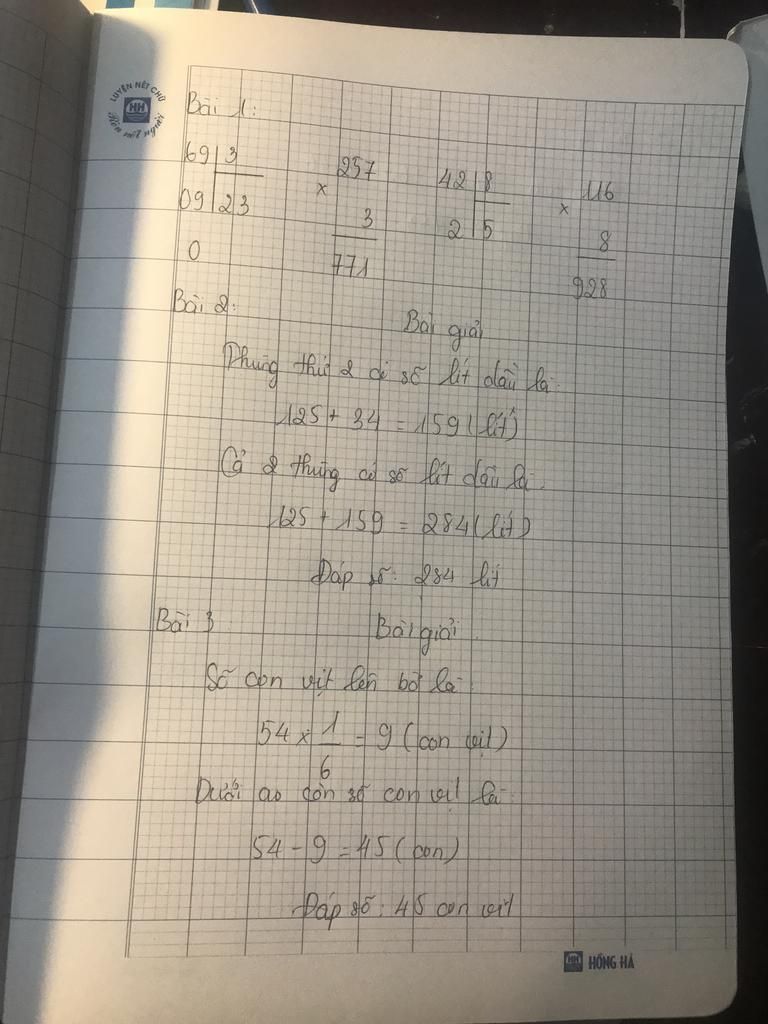 LUYỆN NÉT CHỮ
HH
Rèn nết người
Bài 1:
69 3 257 42 8 116
x x
09 23 3 2 5 8
0 771 928
Bài 2:
Bài giải
Thùng thứ 2 có số lít dầu là:
125 + 34 = 159 (lít)
Cả 2 thùng có số lít dầu là:
125 + 159 = 284 (lít)
Đáp số: 284 lít
Bài 3 Bài giải
Số con vịt lên bờ là:
54 x 1/6 = 9 (con vịt)
Dưới ao còn số con vịt là:
54 - 9 = 45 (con)
Đáp số: 45 con vịt
HH HỒNG HÀ